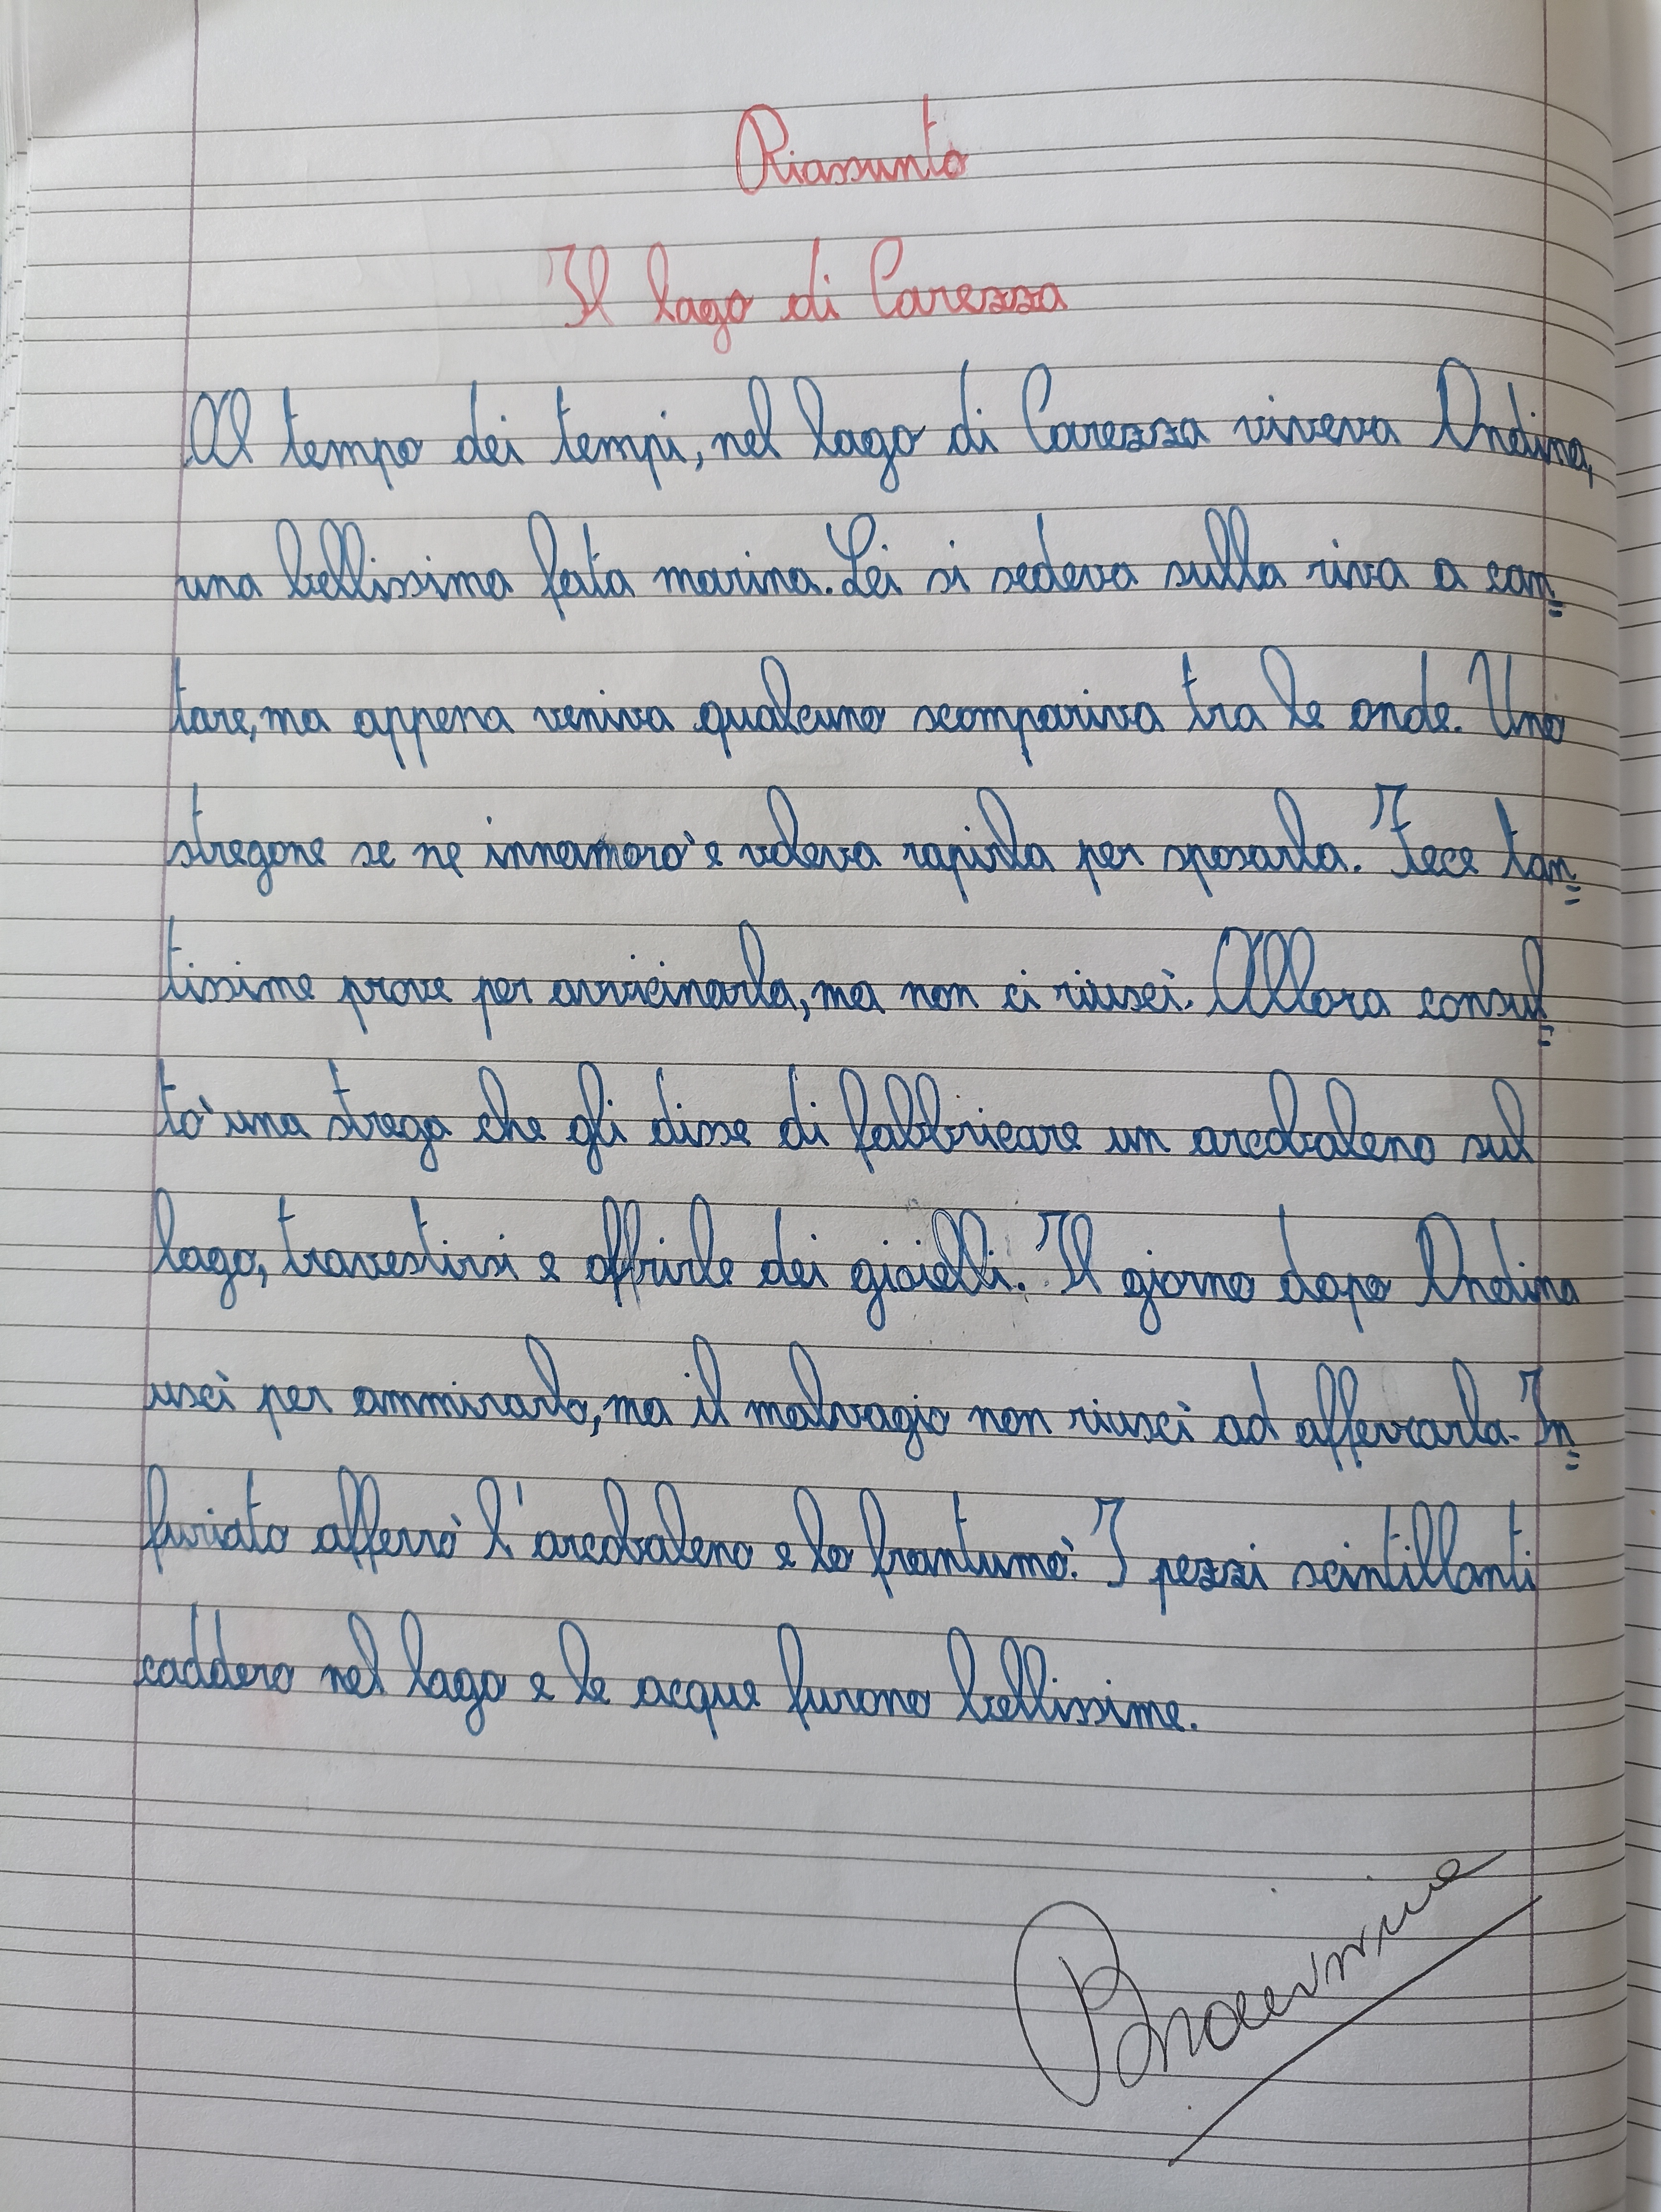 Riassunto
Il lago di Carezza
Al tempo dei tempi, nel lago di Carezza viveva Ondina,
una bellissima fata marina. Lei si sedeva sulla riva a can=
tare, ma appena veniva qualcuno scompariva tra le onde. Uno
stregone se ne innamorò e voleva rapirla per sposarla. Fece tan=
tissime prove per avvicinarla, ma non ci riuscì. Allora consul=
tò una strega che gli disse di fabbricare un arcobaleno sul
lago, travestirsi e offrirle dei gioielli. Il giorno dopo Ondina
uscì per ammirarlo, ma il malvagio non riuscì ad afferrarla. In=
furiato afferrò l'arcobaleno e lo frantumò. I pezzi scintillanti
caddero nel lago e le acque furono bellissime.
Bravissima